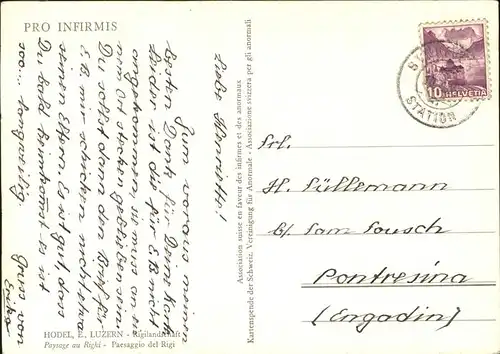 PRO INFIRMIS
Liebe
Zum voraus meinen
besten Dank für Deine Karte
Leider ist das für E.B. nicht
angekommen, es muss an ei-
nem Ort stecken geblieben sein.
Du solltest dann den
E.B. mir schicken nicht
seinen Eltern. Es ist gut, dass
Du bald heimkommst es ist
soo... langweilig.
Gruss von
Erika
HODEL, E., LUZERN - Rigilandschaft
Paysage au Righi - Paesaggio del Rigi
Association suisse en faveur des infirmes et des anormaux
Kartenspende der Schweiz. Vereinigung für Anormale - Associazione svizzera per gli anormali
10 HELVETIA
STATION
Frl.
H. Füllemann
b/ Sam Sousch
Pontresina
(Engadin)